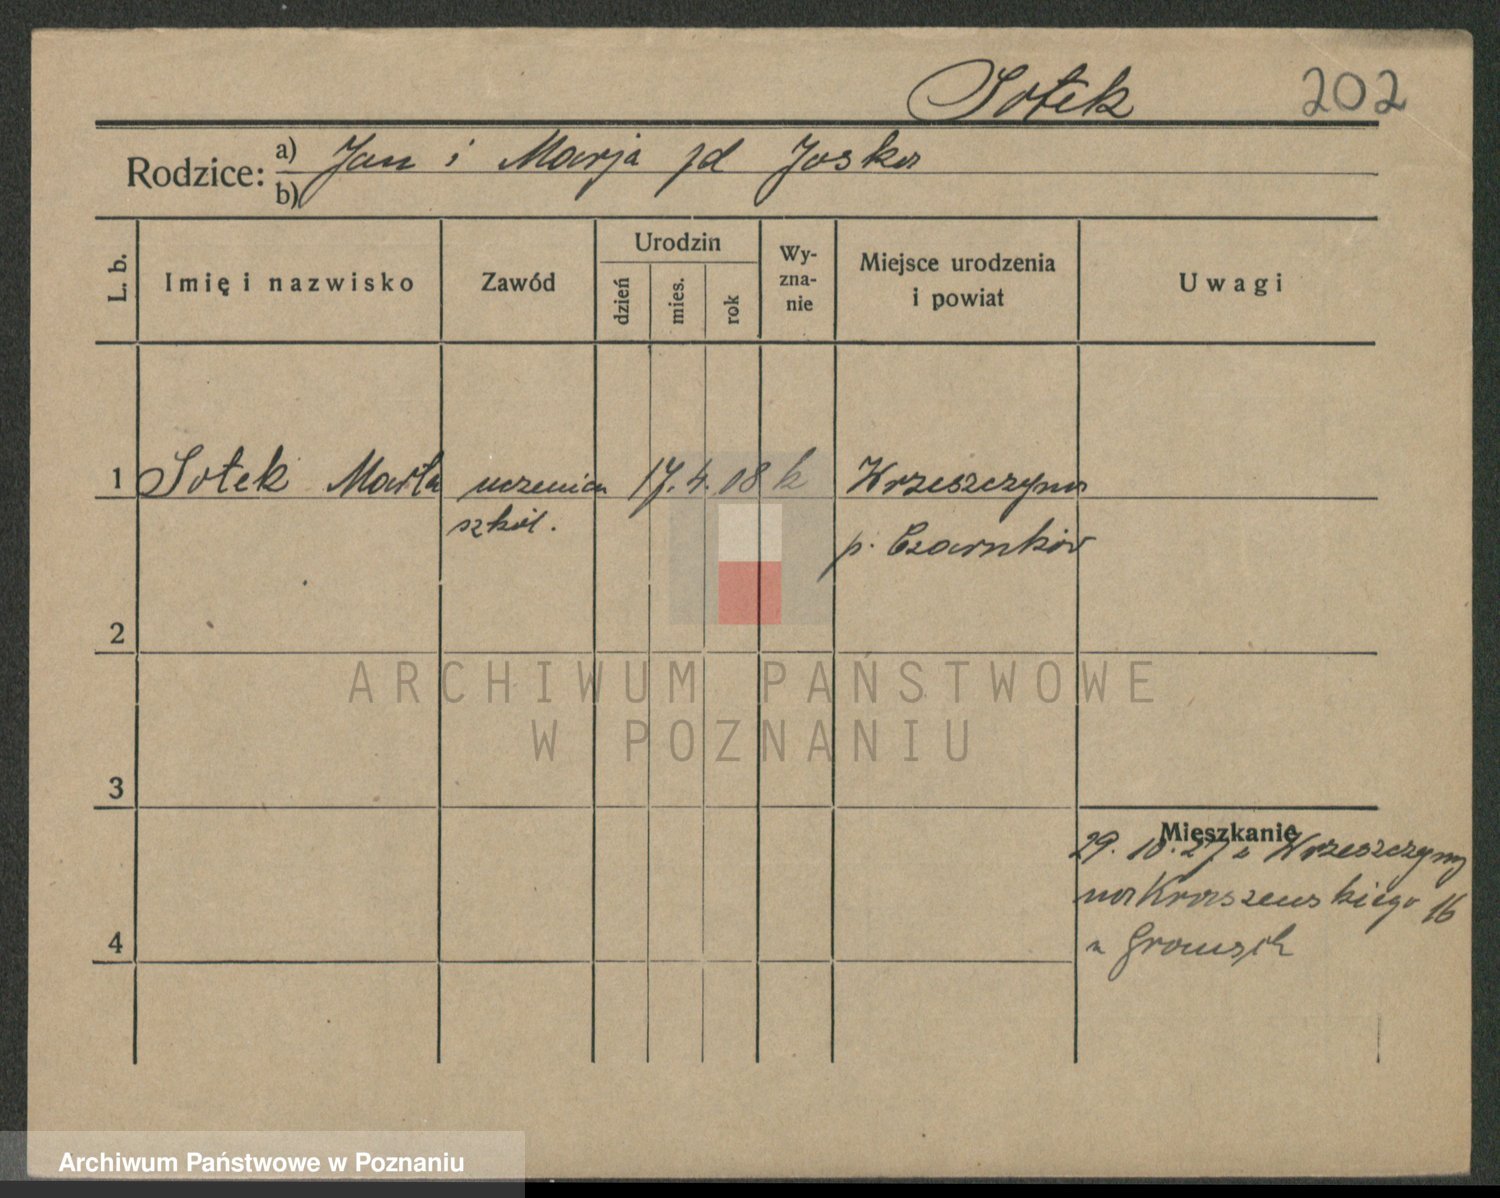 Sołek 202
Rodzice: a) Jan i Marja zd Joska
b)
L. b. Imię i nazwisko Zawód Urodzin dzień mies. rok Wyznanie Miejsce urodzenia i powiat Uwagi
1 Sołek Marta uczenica 17. 4. 08 k Wrzeszczyna
szkół. p. Czarnków
2
3
Mieszkanie
29. 10. 27 z Wrzeszczyny
na Kraszewskiego 16
4
ARCHIWUM PAŃSTWOWE
W POZNANIU
Archiwum Państwowe w Poznaniu